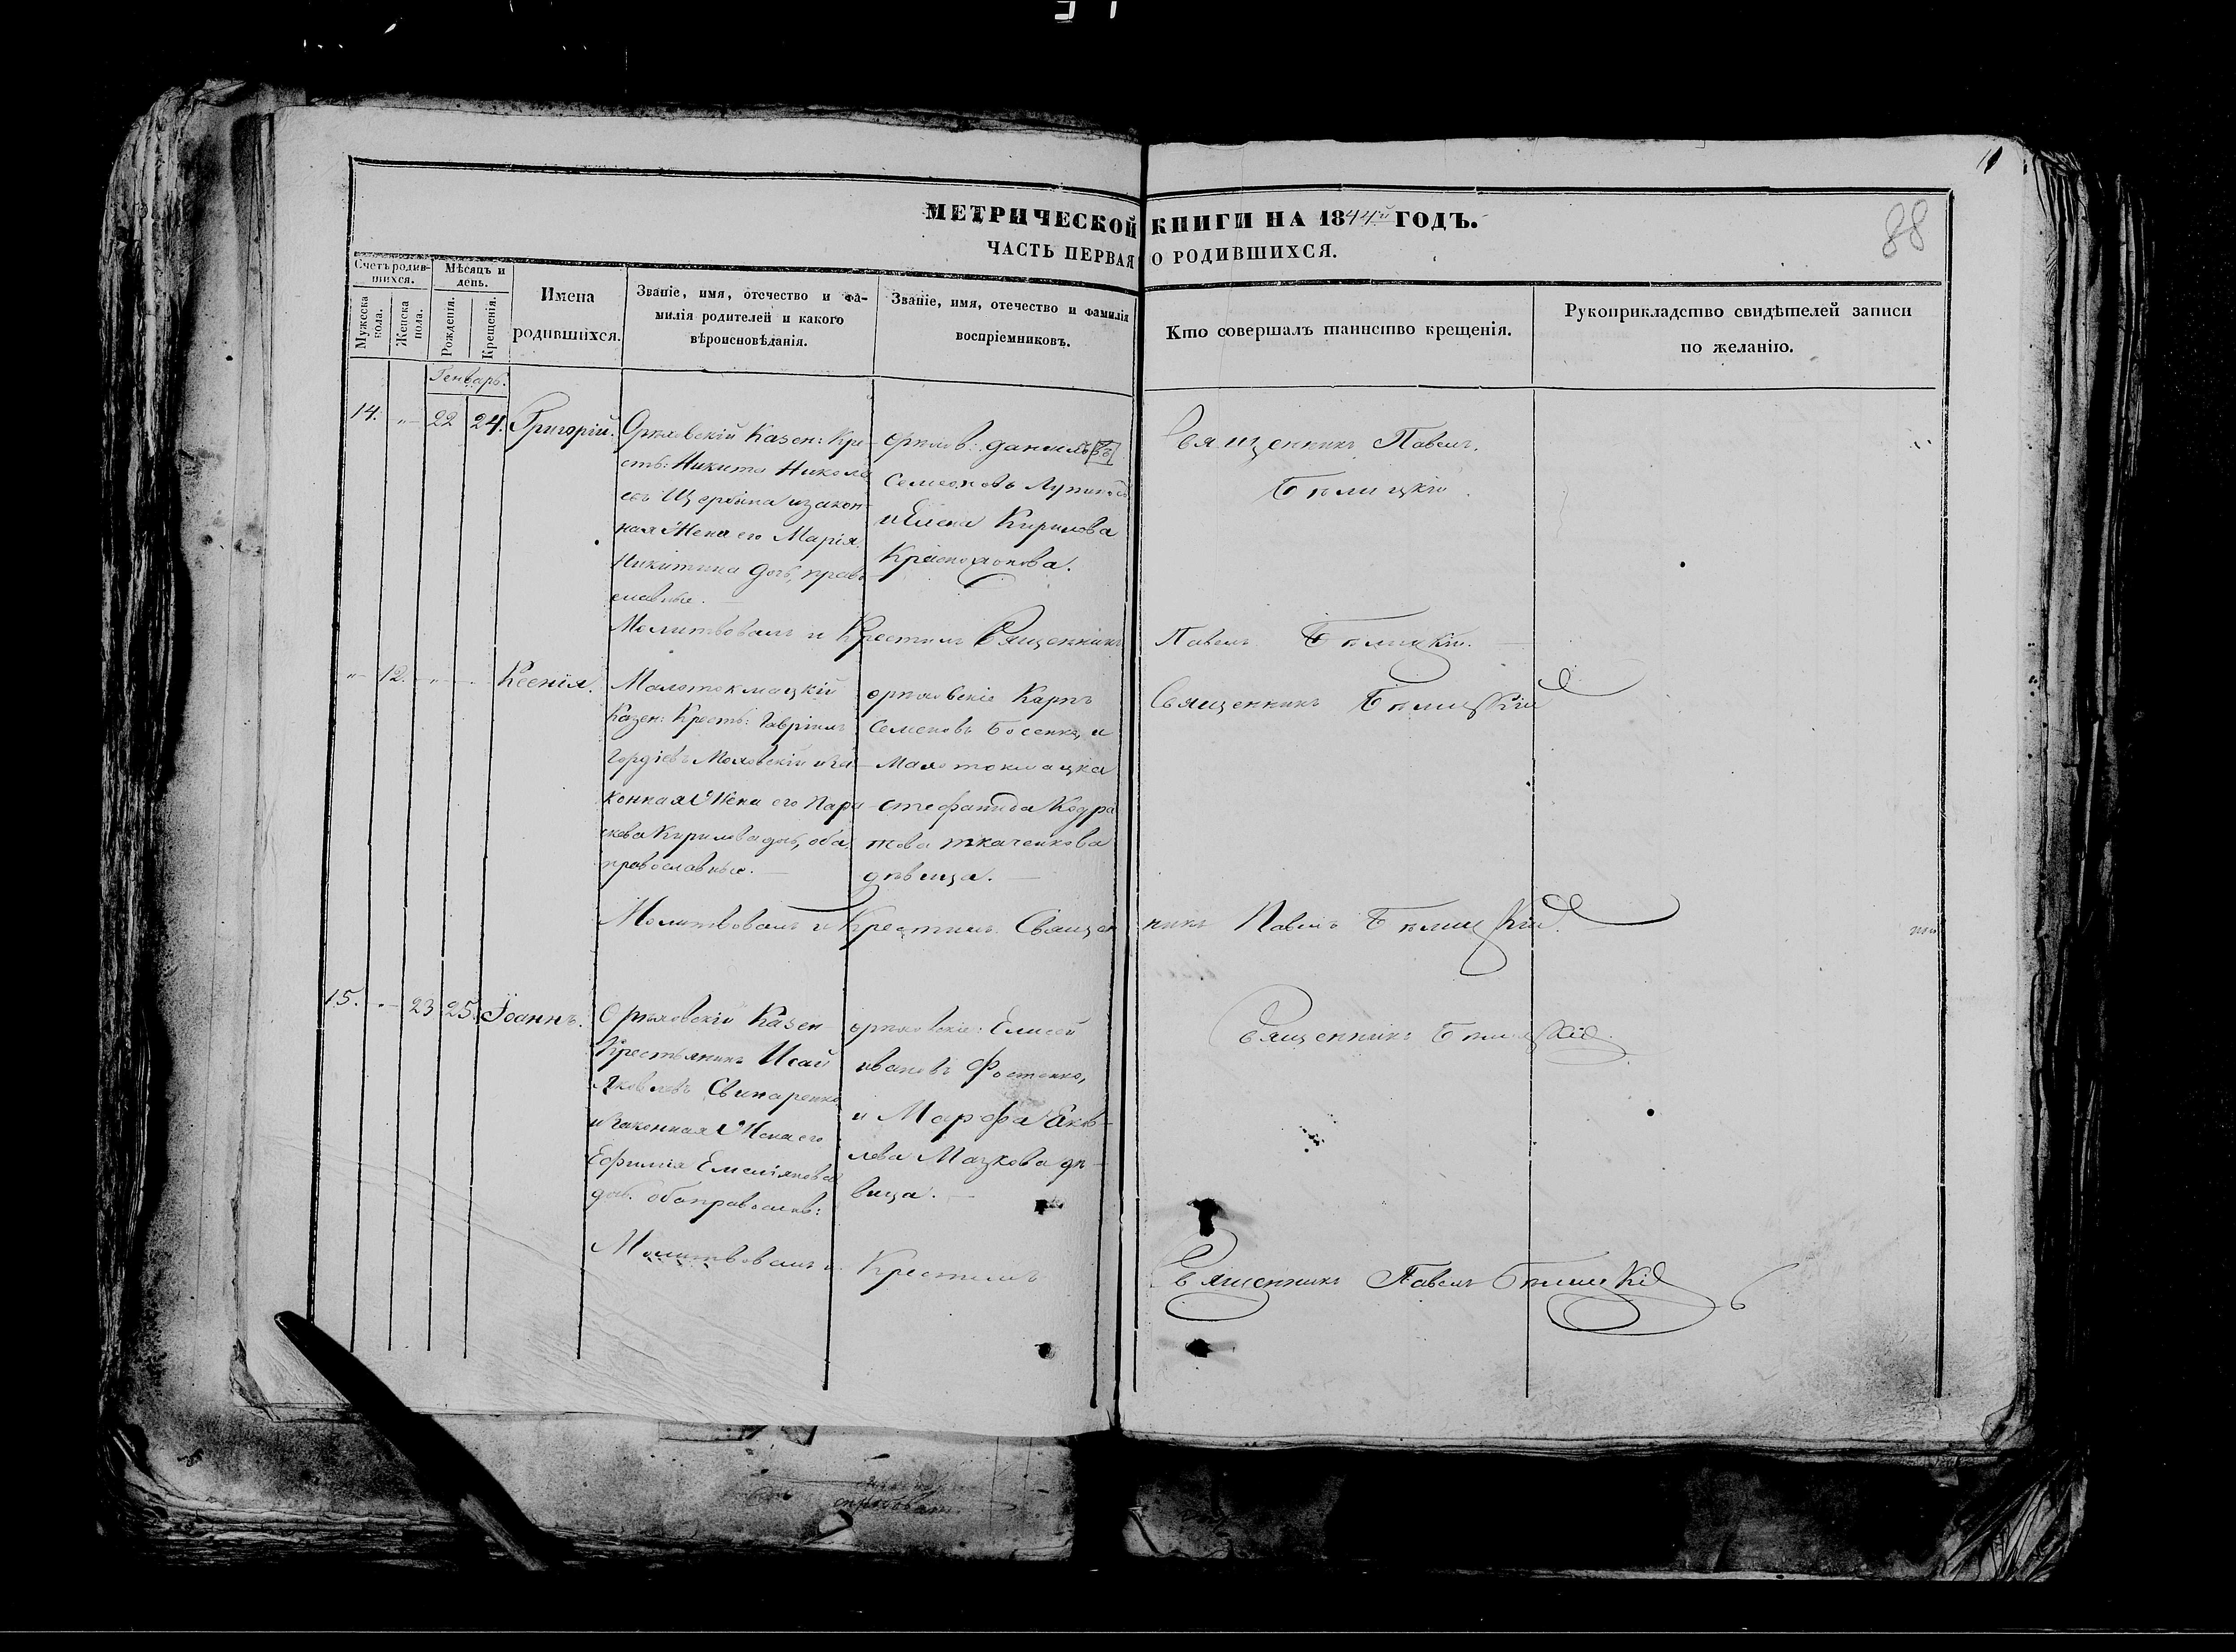 МЕТРИЧЕСКОЙ КНИГИ НА 1844й ГОДЪ.
ЧАСТЬ ПЕРВАЯ О РОДИВШИХСЯ.
88
Счетъ родив-
шихся.
Мужеска
пола.
Женска
пола.
Мѣсяцъ и
день.
Рожденія.
Крещенія.
Имена
родившихся.
Званіе, имя, отечество и фа-
милія родителей и какого
вѣроисповѣданія.
Званіе, имя, отечество и фамилія
воспріемниковъ.
Кто совершалъ таинство крещенія.
Рукоприкладство свидѣтелей записи
по желанію.
Генварь.
14. „ 22 24. Григорій.
Орѣховскій Казен: Кре-
сть: Никита Никола
евъ Щербина и закон-
ная Жена его Марія
Никитина дочь, право
славные.
орѣхов: даніилъ
Семеоновъ
и Елена Кирилова
Краснохонова.
Священникъ Павелъ
Бѣлицкій
Молитвовалъ и Крестилъ Священникъ Павелъ Бѣлицкій.
„ 12. „ Ксенія.
Малотокмацкій
Казен: Кресть: Гавріилъ
Гордіевъ Маловскій и за-
конная Жена его Пара
скева Кирилова дочь, оба
православные.
орѣховскіе Карпъ
Семеновъ Босенко, и
Малотокмацка
стефанида Кодра
това ткаченкова
дѣвица.
Священникъ Бѣлицкій
Молитвовалъ и Крестилъ Священникъ Павелъ Бѣлицкій.
15. „ 23 25. Іоаннъ.
Орѣховскій Казен
Крестьянинъ Исай
Яковлевъ Свинаренко
и законная Жена его
Ефимія Емеліянова
доч. оба православ:
орѣховскіе: Елисей
ивановъ Фостенко,
и Марфа Яков-
лева Мазкова дѣ-
вица.
Священникъ Бѣлицкій
Молитвовалъ и Крестилъ Священникъ Павелъ Бѣлицкій